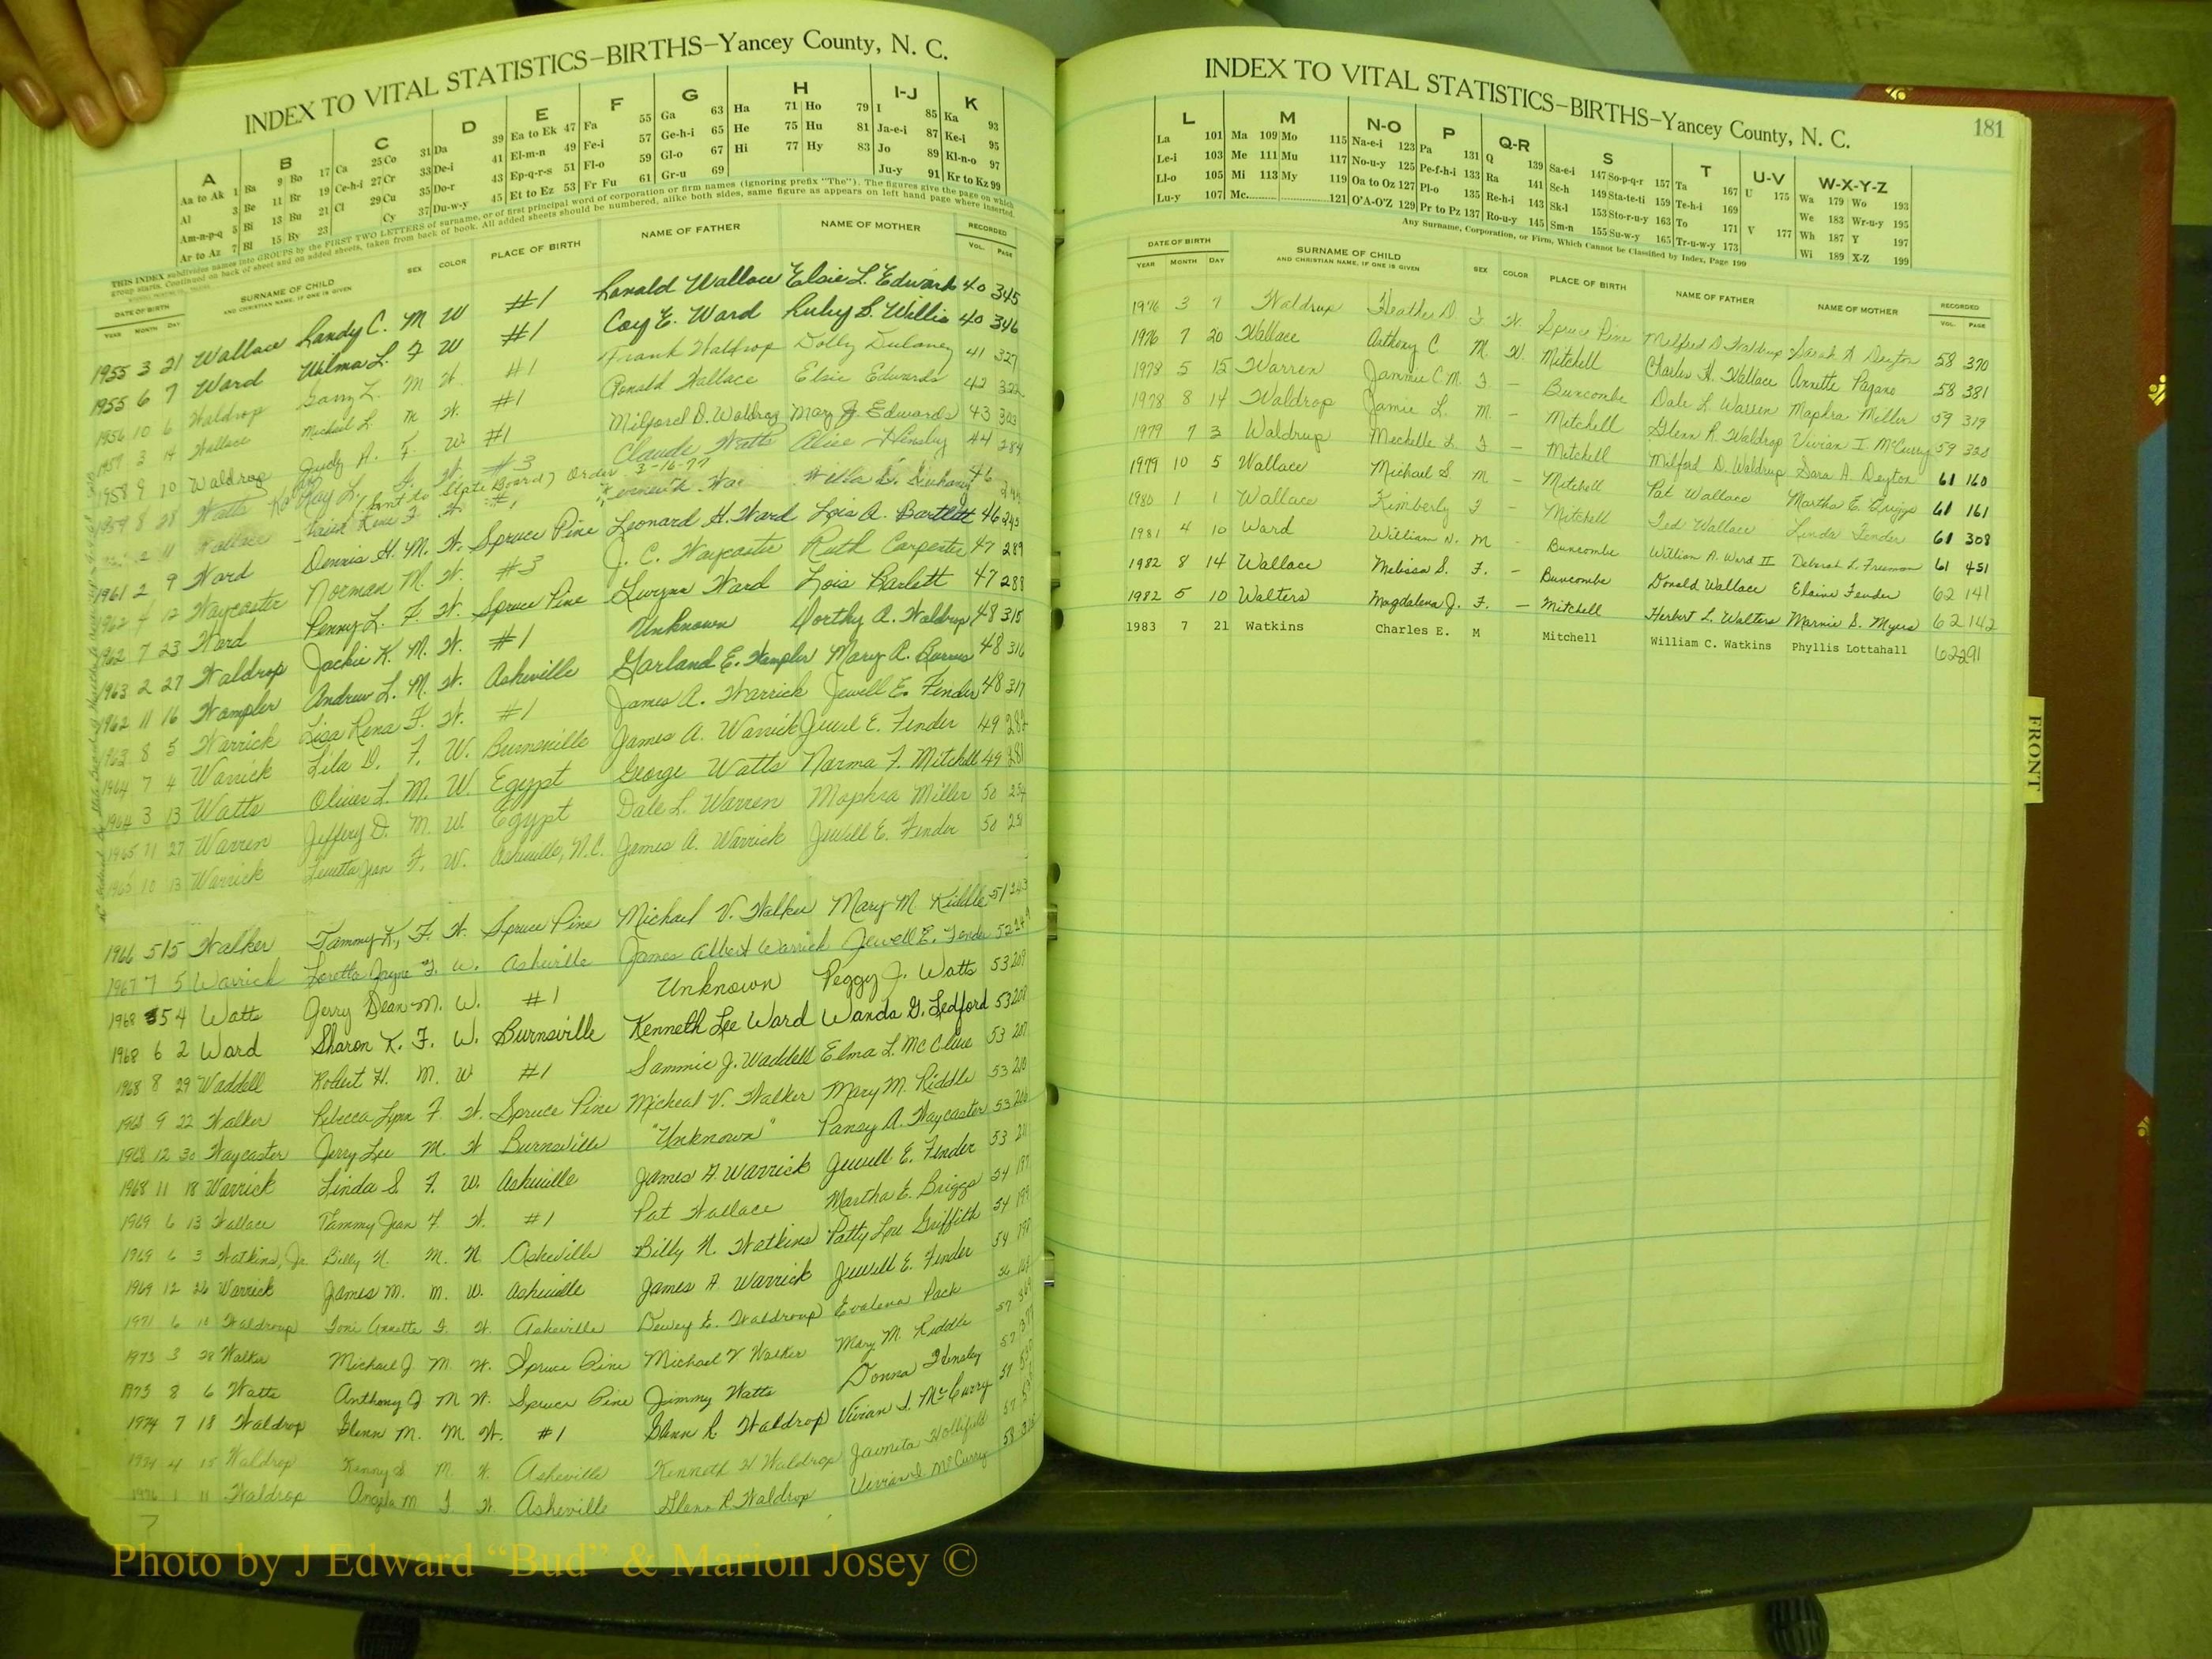 INDEX TO VITAL STATISTICS–BIRTHS–Yancey County, N. C.
A B C D E F G H I-J K
Aa to Ak 1 Ba 9 Bo 17 Ca 25 Co 31 Da 39 Ea to Ek 47 Fa 55 Ga 63 Ha 71 Ho 79 I 85 Ka 93
Al 3 Be 11 Br 19 Ce-h-i 27 Cr 33 De-i 41 El-m-n 49 Fe-i 57 Ge-h-i 65 He 75 Hu 81 Ja-e-i 87 Ke-i 95
Am-n-p-q 5 Bi 13 Bu 21 Cl 29 Cu 35 Do-r 43 Ep-q-r-s 51 Fl-o 59 Gl-o 67 Hi 77 Hy 83 Jo 89 Kl-n-o 97
Ar to Az 7 Bl 15 By 23 Cy 37 Du-w-y 45 Et to Ez 53 Fr Fu 61 Gr-u 69 Ju-y 91 Kr to Kz 99
THIS INDEX subdivides names into GROUPS by the FIRST TWO LETTERS of surname, or of first principal word of corporation or firm names (ignoring prefix "The"). The figures give the page on which
group starts. Continued on back of sheet and on added sheets, taken from back of book. All added sheets should be numbered, alike both sides, same figure as appears on left hand page where inserted.
DATE OF BIRTH SURNAME OF CHILD SEX COLOR PLACE OF BIRTH NAME OF FATHER NAME OF MOTHER RECORDED
YEAR MONTH DAY AND CHRISTIAN NAME, IF ONE IS GIVEN VOL. PAGE
1955 3 21 Wallace Landy C. M W #1 Lanald Wallace Elsie L. Edwards 40 345
1955 6 7 Ward Wilma L. F W #1 Coy E. Ward Ruby S. Willis 40 346
1956 10 6 Waldrop Garry L. M W. #1 Frank Waldrop Dolly Dulaney 41 327
1957 3 14 Wallace Michael L. M W. #1 Ronald Wallace Elsie Edwards 42 322
1958 9 10 Waldrop Judy A. F. W. #1 Milford D. Waldrop Mary J. Edwards 43 303
1959 8 28 Watts Kay L. F. W. #3 Claude Watts Alice Hensley 44 284
Sent to State Board, Order 3-16-77
2 11 Wallace F W #1 Kenneth Willa 46
1961 2 9 Ward Dennis H. M. W. Spruce Pine Leonard H. Ward Lois A. Bartlett 46 243
1962 4 12 Waycaster Norman M. W. #3 J. C. Waycaster Ruth Carpenter 47 289
1962 7 23 Ward Penny L. F. W. Spruce Pine Lwynn Ward Lois Barlett 47 288
1963 2 27 Waldrop Jackie K. M. W. #1 Unknown Dorthy A. Waldrop 48 315
1962 11 16 Wampler Andrew L. M. W. Asheville Garland E. Wampler Mary A. Burns 48 316
1963 8 5 Warrick Lisa Rena F. W. #1 James A. Warrick Jewell E. Fender 48 317
1964 7 4 Warrick Lila D. F. W. Burnsville James A. Warrick Jewel E. Fender 49 282
1964 3 13 Watts Oliver L. M. W. Egypt George Watts Norma F. Mitchell 49 281
1965 11 27 Warren Jeffery D. M. W. Egypt Dale L. Warren Mophra Miller 50 254
1965 10 13 Warrick Jean F. W. Asheville, N.C. James A. Warrick Jewell E. Fender 50 251
1966 5 15 Walker Tammy K, F. W. Spruce Pine Michael V. Walker Mary M. Riddle 51 243
1967 7 5 Warrick Loretta Jayne F. W. Asheville James Albert Warrick Jewell E. Fender 52
1968 5 4 Watts Jerry Dean M. W. #1 Unknown Peggy J. Watts 53 209
1968 6 2 Ward Sharon K. F. W. Burnsville Kenneth Lee Ward Wanda G. Ledford 53 208
1968 8 29 Waddell Robert H. M. W #1 Sammie J. Waddell Elma L. McClure 53 207
1968 9 22 Walker Rebecca Lynn F. W. Spruce Pine Micheal V. Walker Mary M. Riddle 53 210
1968 12 30 Waycaster Jerry Lee M. W Burnsville "Unknown" Pansy A. Waycaster 53 206
1968 11 18 Warrick Linda S. F. W. Asheville James A. Warrick Jewell E. Fender 53 211
1969 6 13 Wallace Tammy Jean F W. #1 Pat Wallace Martha E. Briggs 54 197
1969 6 3 Watkins, Jr. Billy N. M. N. Asheville Billy N. Watkins Patty Lou Griffith 54 199
1969 12 26 Warrick James M. M. W. Asheville James A Warrick Jewell E. Fender 54 198
1971 6 Waldroup Toni Annette F. W. Asheville Dewey E. Waldroup Evalena Pack 56
1973 3 28 Walker Michael J M. W. Spruce Pine Michael V Walker Mary M. Riddle 57
1973 8 6 Watts Anthony J M W. Spruce Pine Jimmy Watts Donna Hensley 57
1974 7 18 Waldrop Glenn M. M. W. #1 Glenn R. Waldrop Vivian I. McCurry 57
1974 4 15 Waldrop Kenny S M. W. Asheville Kenneth H Waldrop Jaunita Hollifield 57
1976 1 11 Waldrop Angela M F W. Asheville Glenn R. Waldrop Vivian I. McCurry 58
INDEX TO VITAL STATISTICS–BIRTHS–Yancey County, N. C.
181
L M N-O P Q-R S T U-V W-X-Y-Z
La 101 Ma 109 Mo 115 Na-e-i 123 Pa 131 Q 139 Sa-e-i 147 So-p-q-r 157 Ta 167 U 175 Wa 179 Wo 193
Le-i 103 Me 111 Mu 117 No-u-y 125 Pe-f-h-i 133 Ra 141 Sc-h 149 Sta-te-ti 159 Te-h-i 169 We 183 Wr-u-y 195
Ll-o 105 Mi 113 My 119 Oa to Oz 127 Pl-o 135 Re-h-i 143 Sk-l 153 Sto-r-u-y 163 To 171 V 177 Wh 187 Y 197
Lu-y 107 Mc 121 O'A-O'Z 129 Pr to Pz 137 Ro-u-y 145 Sm-n 155 Su-w-y 165 Tr-u-w-y 173 Wi 189 X-Z 199
Any Surname, Corporation, or Firm, Which Cannot be Classified by Index, Page 199
DATE OF BIRTH SURNAME OF CHILD SEX COLOR PLACE OF BIRTH NAME OF FATHER NAME OF MOTHER RECORDED
YEAR MONTH DAY AND CHRISTIAN NAME, IF ONE IS GIVEN VOL. PAGE
1976 3 7 Waldrup Heather D F W. Spruce Pine Milford D Waldrup Sarah A Deyton 58 370
1976 7 20 Wallace Anthony C M. W. Mitchell Charles H. Wallace Annette Pagano 58 381
1978 5 15 Warren Jammie C.M. F – Buncombe Dale L Warren Maphra Miller 59 319
1978 8 14 Waldrop Jamie L. M – Mitchell Glenn R. Waldrop Vivian I McCurry 59 328
1979 7 3 Waldrup Mechelle L F – Mitchell Milford D. Waldrup Sara A. Deyton 61 160
1979 10 5 Wallace Michael S. M – Mitchell Pat Wallace Martha E. Briggs 61 161
1980 1 1 Wallace Kimberly F – Mitchell Ted Wallace Linda Fender 61 308
1981 4 10 Ward William N. M – Buncombe William A. Ward II Deborah L. Freeman 61 451
1982 8 14 Wallace Melissa S. F. – Buncombe Donald Wallace Elaine Fender 62 141
1982 5 10 Walters Magdalena J. F. – Mitchell Herbert L. Walters Marnie S. Myers 62 142
1983 7 21 Watkins Charles E. M Mitchell William C. Watkins Phyllis Lottahall 62 291
FRONT
Photo by J Edward “Bud” & Marion Josey ©